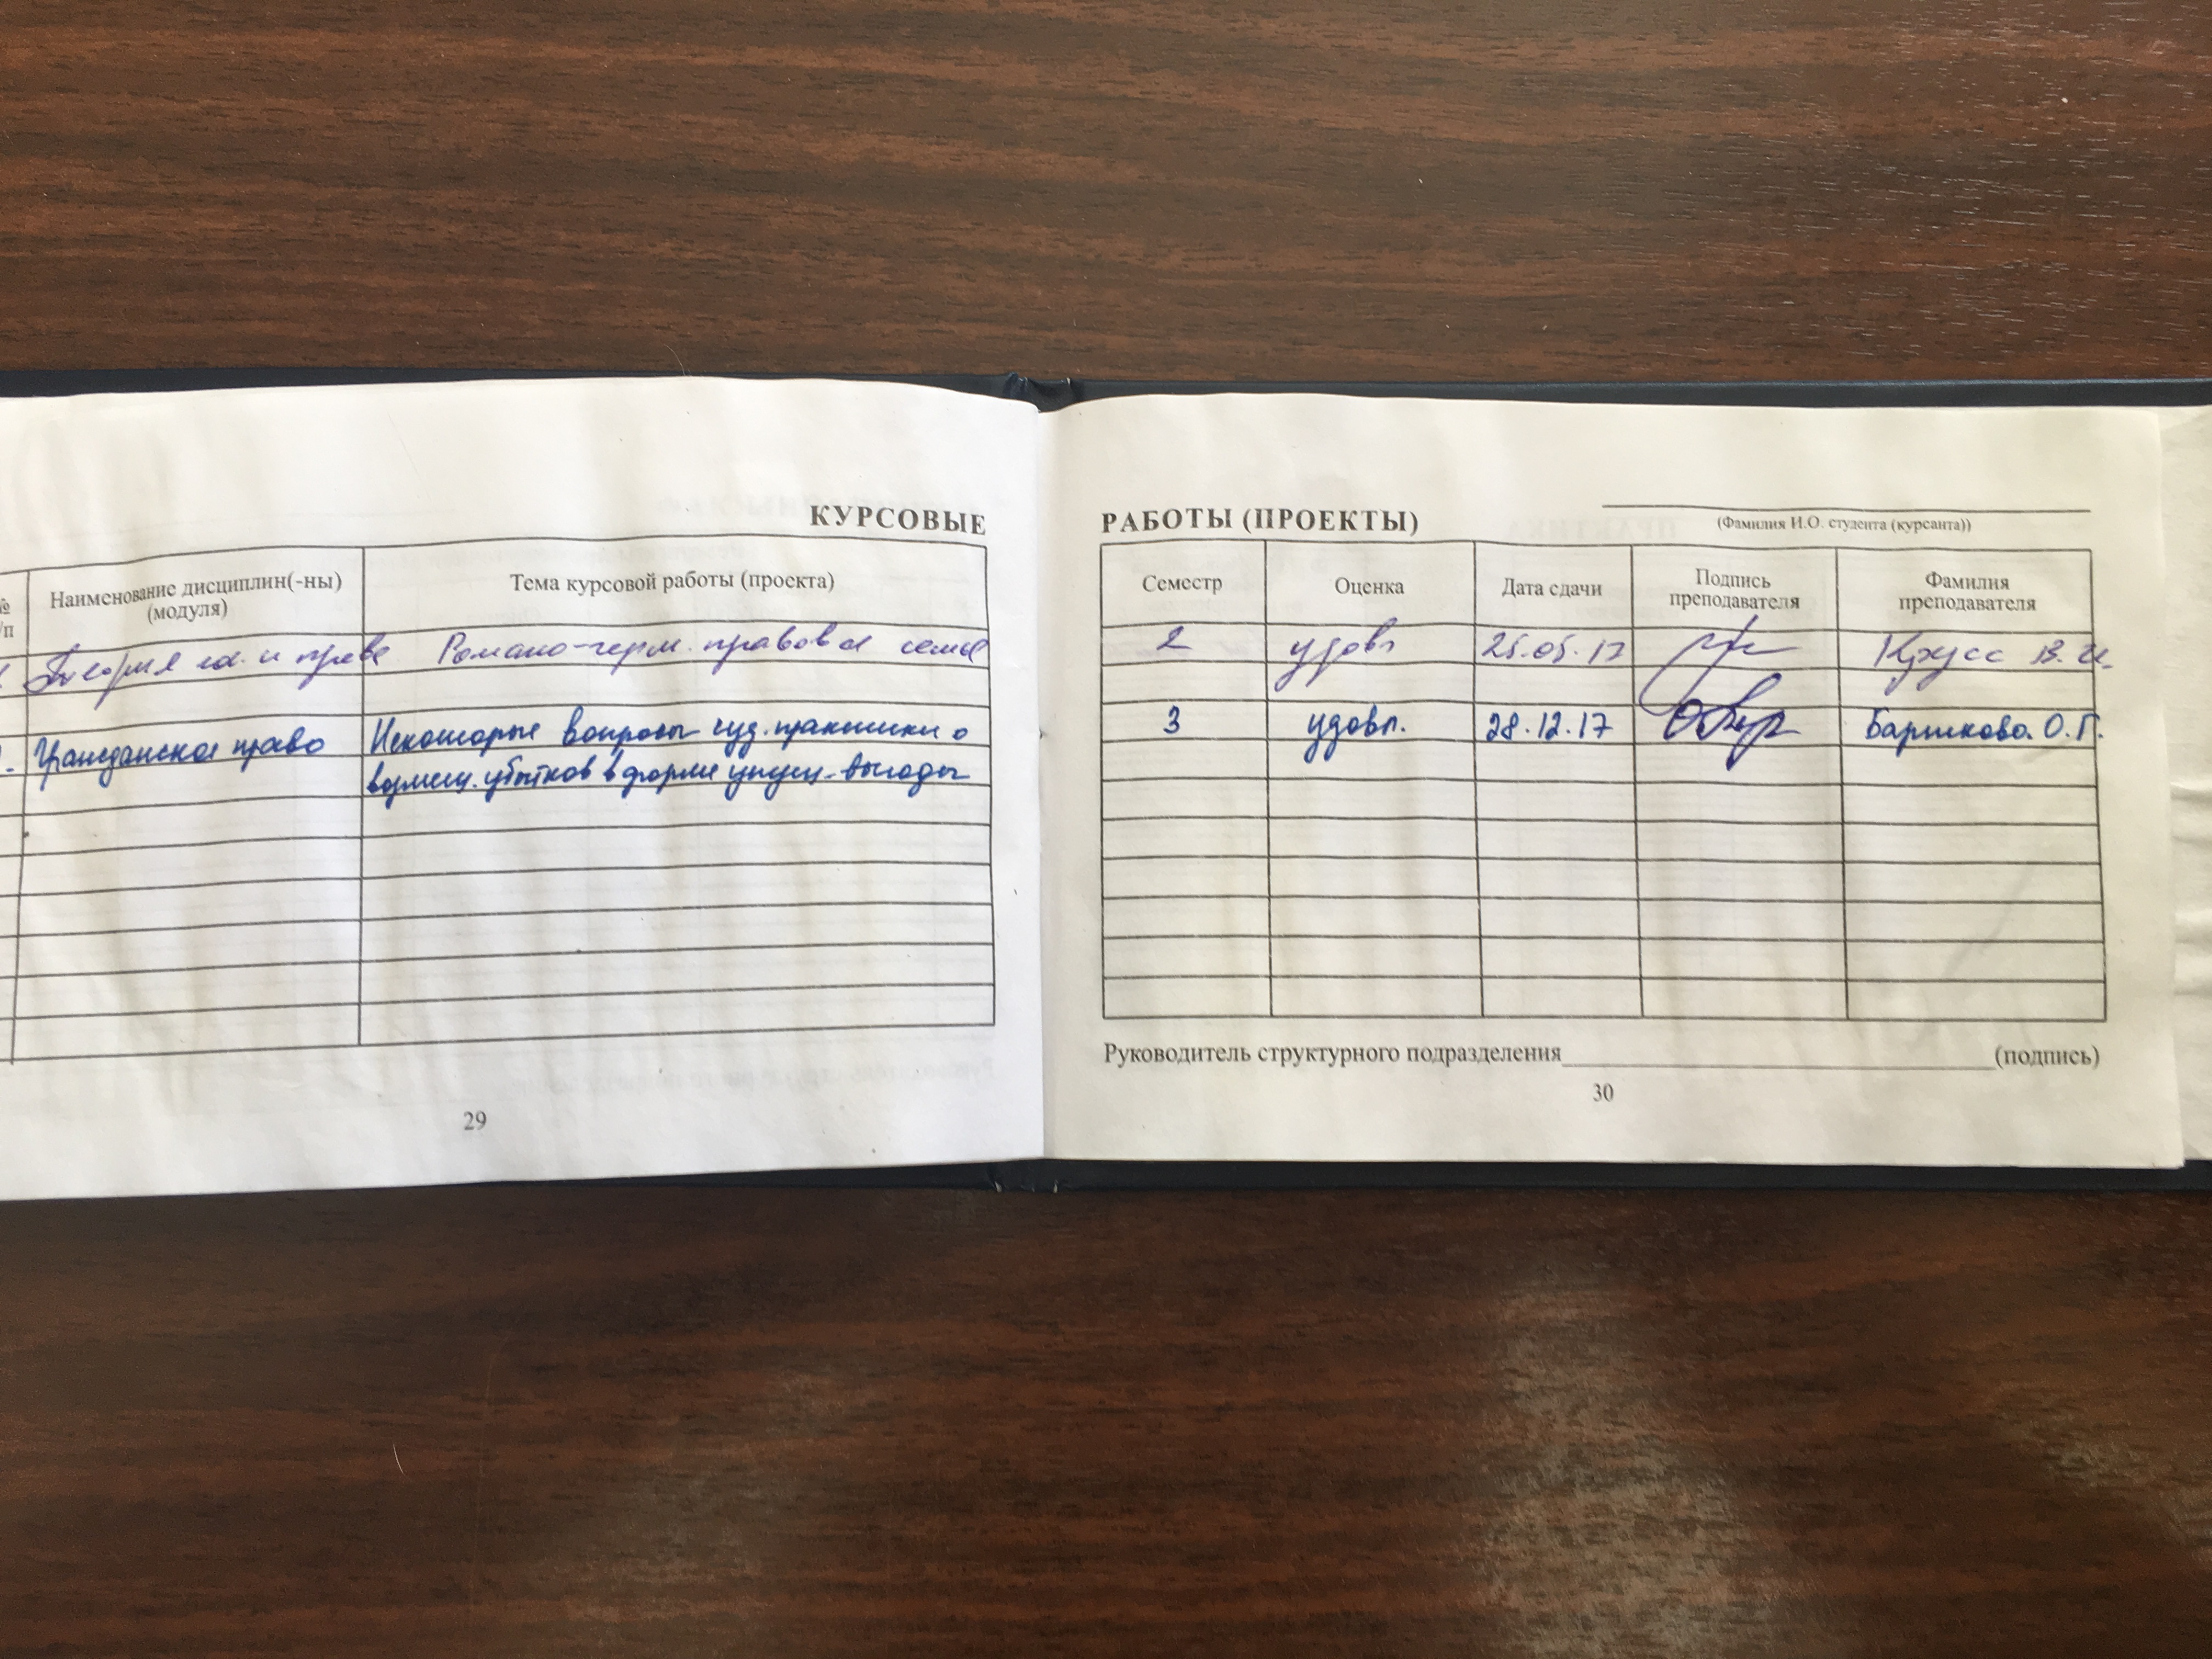 КУРСОВЫЕ
№ Наименование дисциплин(-ны) Тема курсовой работы (проекта)
/п (модуля)
Теория гос. и права Романо-герм. правовая семья
Гражданское право Некоторые вопросы суд. практики о
возмещ. убытков в форме упущ. выгоды
29
РАБОТЫ (ПРОЕКТЫ)
(Фамилия И.О. студента (курсанта))
Семестр Оценка Дата сдачи Подпись преподавателя Фамилия преподавателя
2 удовл 25.05.17 Крусс В.И.
3 удовл. 28.12.17 Барткова О.Г.
Руководитель структурного подразделения (подпись)
30